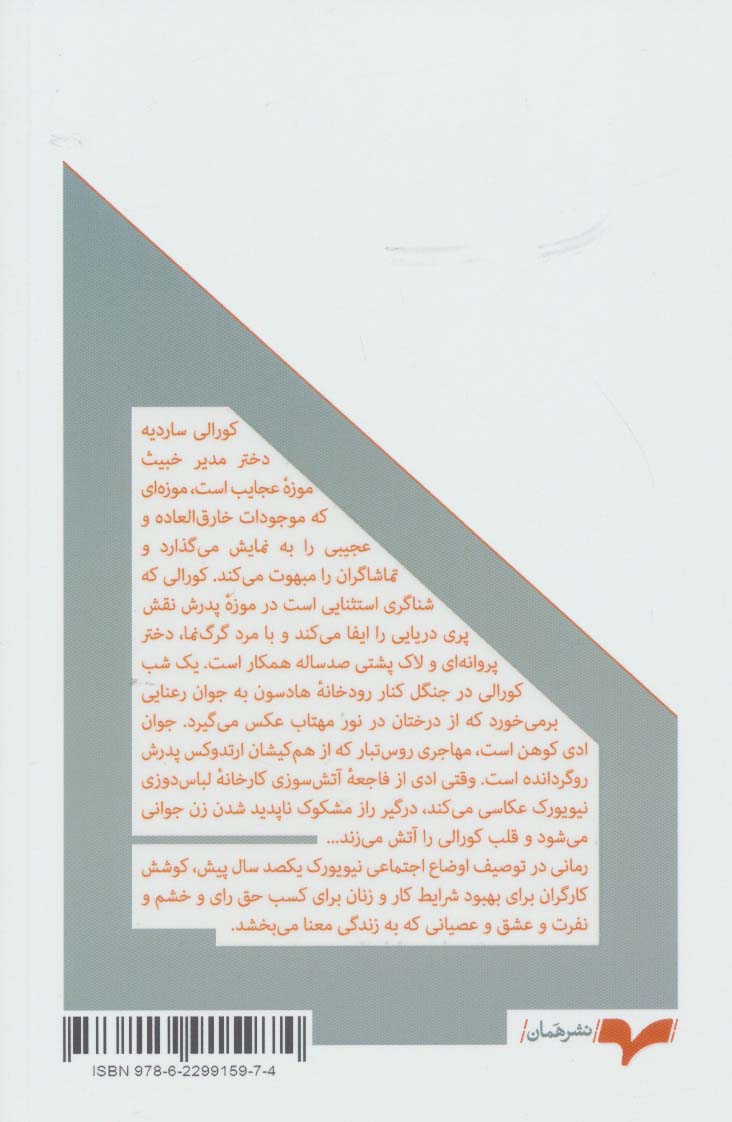 کورالی ساردیه
دختر مدیر خبیث
موزهٔ عجایب است، موزه‌ای
که موجودات خارق‌العاده و
عجیبی را به نمایش می‌گذارد و
تماشاگران را مبهوت می‌کند. کورالی که
شناگری استثنایی است در موزهٔ پدرش نقش
پری دریایی را ایفا می‌کند و با مرد گرگ‌نما، دختر
پروانه‌ای و لاک پشتی صدساله همکار است. یک شب
کورالی در جنگل کنار رودخانهٔ هادسون به جوان رعنایی
برمی‌خورد که از درختان در نور مهتاب عکس می‌گیرد. جوان
ادی کوهن است، مهاجری روس‌تبار که از هم‌کیشان ارتدوکس پدرش
روگردانده است. وقتی ادی از فاجعهٔ آتش‌سوزی کارخانهٔ لباس‌دوزی
نیویورک عکاسی می‌کند، درگیر راز مشکوک ناپدید شدن زن جوانی
می‌شود و قلب کورالی را آتش می‌زند...
رمانی در توصیف اوضاع اجتماعی نیویورک یکصد سال پیش، کوشش
کارگران برای بهبود شرایط کار و زنان برای کسب حق رای و خشم و
نفرت و عشق و عصیانی که به زندگی معنا می‌بخشد.
نشر هَمان
ISBN 978-6-2299159-7-4